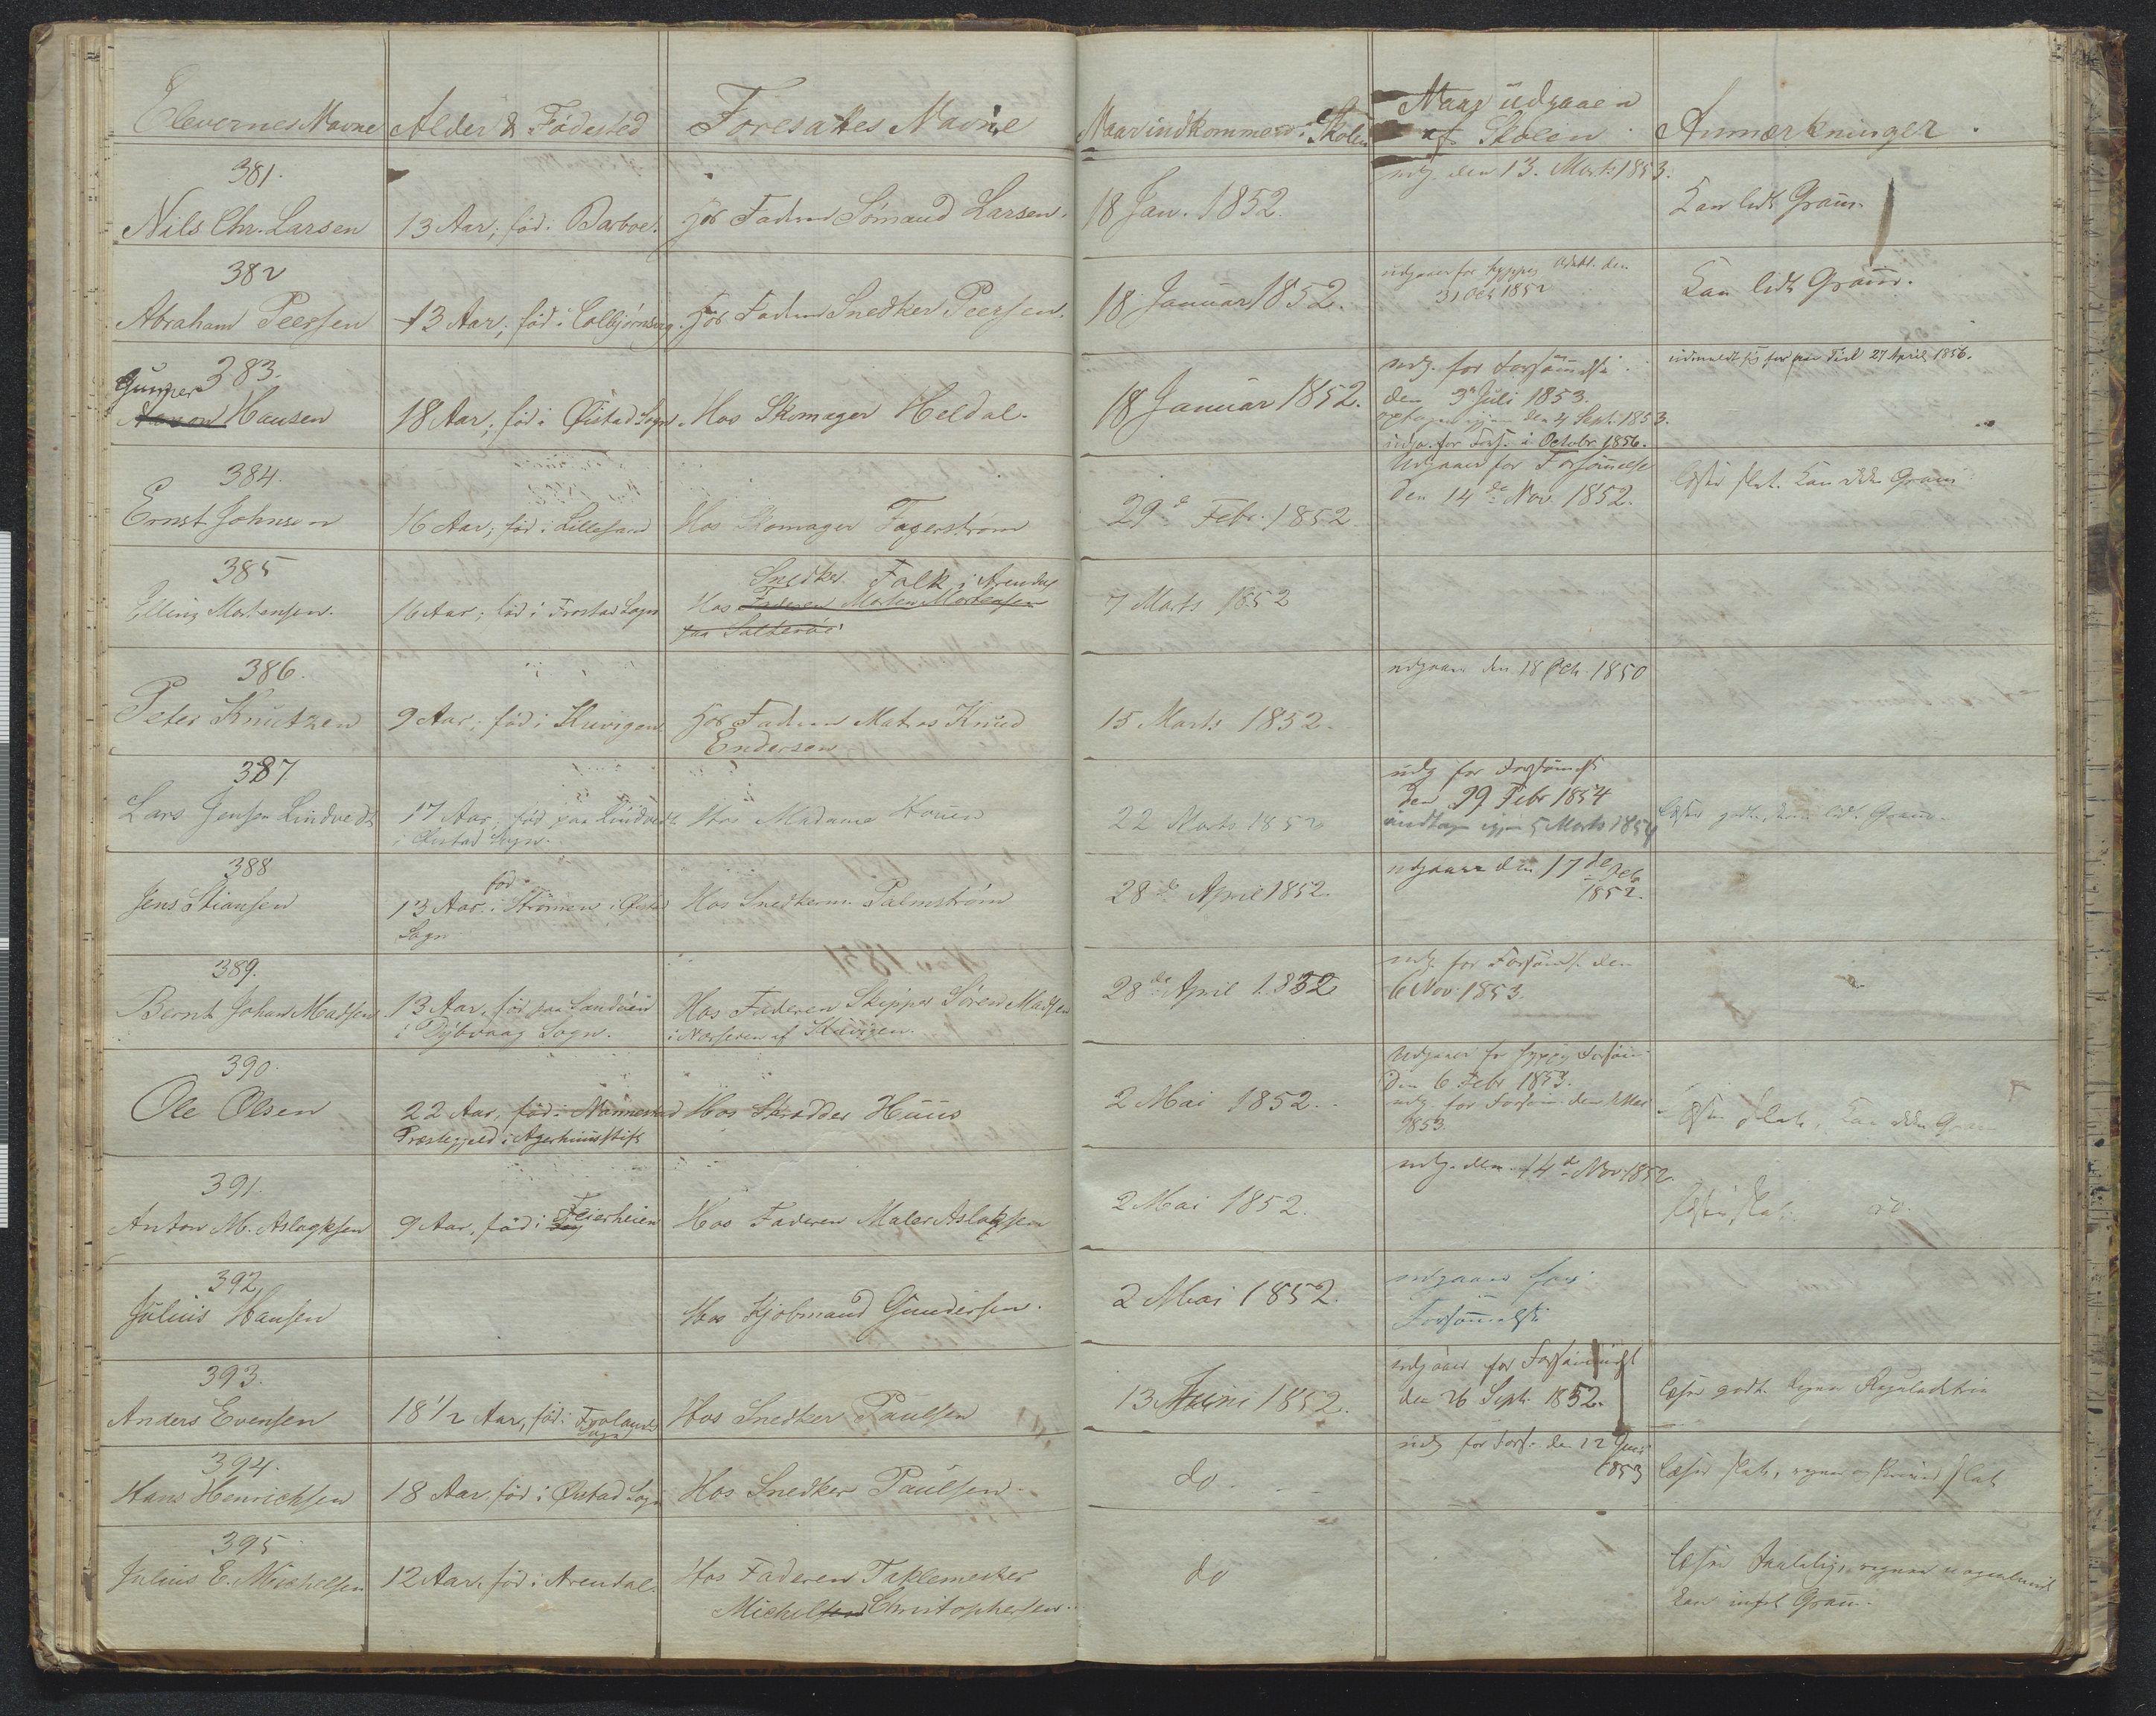 Elevernes Navne Alder & Fødested Foresattes Navne Naar indkommen i Skolen Naar udgaaen af Skolen Anmærkninger.
381.
Nils Chr. Larsen 13 Aar, fød i Barboe. Faderen Sømand Larsen. 18 Jan. 1852. udg. den 13. Marts 1853. Kan lidt Gram.
382
Abraham Peersen 13 Aar, fød i Colbjørnsvig. Faderen Snedker Peersen. 18 Januar 1852. udgaaer for hyppig den
31 Oct 1852 Kan lidt Gram.
383.
Gunder Hansen 18 Aar, fød i Øistad Sogn. Hos Skomager Heldal. 18 Januar 1852. udg. for Forsømmelse
den 3 Juli 1853.
optagen igjen den 4 Sept. 1853.
udg. for Fors. i Octobr 1856. udmeldt 27 April 1856.
384.
Ernst Johnsen 16 Aar; fød i Lillesand Hos Skomager Fagerstrøm 29de Febr. 1852 Udgaaer for Forsømmelse
den 14de Nov. 1852. Læser slet. Kan ikke Gram
385
Elling Mortensen. 16 Aar; fød i Trostad Sogn Snedker Falk i Arendal
Hos Faderen Morten Mortensen
paa Salterøe 7 Marts 1852
386.
Peter Knutzen 9 Aar; fød i Kuvigen Faderen Matros Knud
Endersen 15 Marts 1852. udgaaer den 18 Oct. 1850
387
Lars Jensen Lindvedt 17 Aar, fød paa Lindvedt
i Øiestad Sogn. Hos Madame Houen 22 Marts 1852 udg for Forsømmelse
Den 19 Febr 1854
indtagen igjen 5 Marts 1854 Læser godt, lidt Gram.
388
Jens Stiansen 13 Aar. fød i Strømmen i Øistad
Sogn Hos Snedkerm. Palmstrøm 28de April 1852. udgaaer den 17de Oct
1852.
389.
Bernt Johan Madsen 13 Aar, fød paa Sandøen
i Dybvaag Sogn. Hos Faderen Skipper Søren Madsen
i Nærheden af Kuvigen. 28de April 1852 udg. for Forsømmelse den
6 Nov. 1853.
390.
Ole Olsen 22 Aar, fød i Nannestad
Præstegjeld i Agerhuus Stift Hos Skrædder Huus 2 Mai 1852. Udgaaer for hyppig Forsøm.
Den 6 Febr 1853.
udg. for Forsøm. den
1853. Læser slet, Kan ikke Gram
391.
Anton M. Aslagksen 9 Aar, fød i Feierheien Hos Faderen Maler Aslaksen 2 Mai 1852. udg. den 14de Nov. 1852. Læser slet do.
392,
Julius Hansen Hos Kjøbmand Gundersen. 2 Mai 1852. udgaaer for
Forsømmelse
393.
Anders Evensen 18 1/2 Aar, fød i Frolands
Sogn Hos Snedker Paulsen 13 Juni 1852. udgaaer for Forsømmelse
den 26 Sept. 1852. læser godt. regner Reguladetrie
394.
Hans Henrichsen 18 Aar. fød i Øistad Sogn Hos Snedker Paulsen. do udg for Fors. den 12 Juni
1853 Læser slet, regner og skriver slet
395
Julius E. Michelsen 12 Aar. fød i Arendal. Hos Faderen Taklemester
Michelsen Christophersen. do læser taalelig, regner
Kan intet Gram.